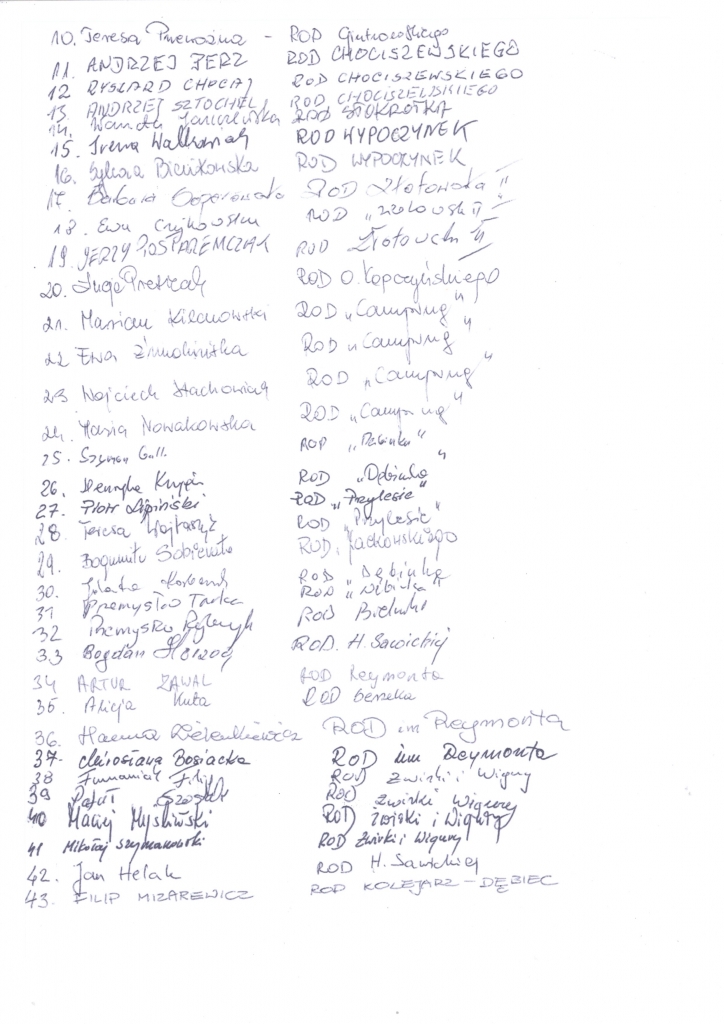 10. Teresa - ROD
11. ANDRZEJ BERZ ROD CHOCISZEWSKIEGO
12 RYSZARD CHOCAJ ROD CHOCISZEWSKIEGO
13 ANDRZEJ SZTOCHEL ROD CHOCISZEWSKIEGO
14. Wanda Janiszewska ROD STOKROTKA
15. Irena Walkowiak ROD WYPOCZYNEK
16. Sylwia Bieńkowska ROD WYPOCZYNEK
17. Barbara ROD Złotowska II
18. Ewa Czyżkowska ROD II
19. JERZY ROD Złotowska II
20. ROD O. Kopczyńskiego
21. Marian Kilanowski ROD „Camping"
22 Ewa ROD „Camping"
23 Wojciech Stachowiak ROD „Camping"
24. Maria Nowakowska ROD „Camping"
25. Szymon Gall. ROD „Dębinka"
26. Henryka ROD „Dębinka"
27. Piotr Lipiński ROD „Przylesie"
28 Teresa ROD „Przylesie"
29. Bogumiła ROD. Jackowskiego
30. Jolanta ROD „Dębinka"
31 Przemysław ROD „Dębinka"
32 Przemysław ROD
33 Bogdan ROD. H. Sawickiej
34 ARTUR ZAWAL ROD Reymonta
35. Alicja Kuta ROD
36. Hanna ROD im Reymonta
37. Mirosława Bosiacka ROD im Reymonta
38 Filip ROD Zwirki i Wigury
39 ROD Zwirki Wigury
40 Maciej Mysliwski ROD Zwirki i Wigury
41 Mikołaj Szymanowski ROD Zwirki i Wigury
42. Jan Helak ROD H. Sawickiej
43. FILIP MIZAREWICZ ROD KOLEJARZ - DĘBIEC